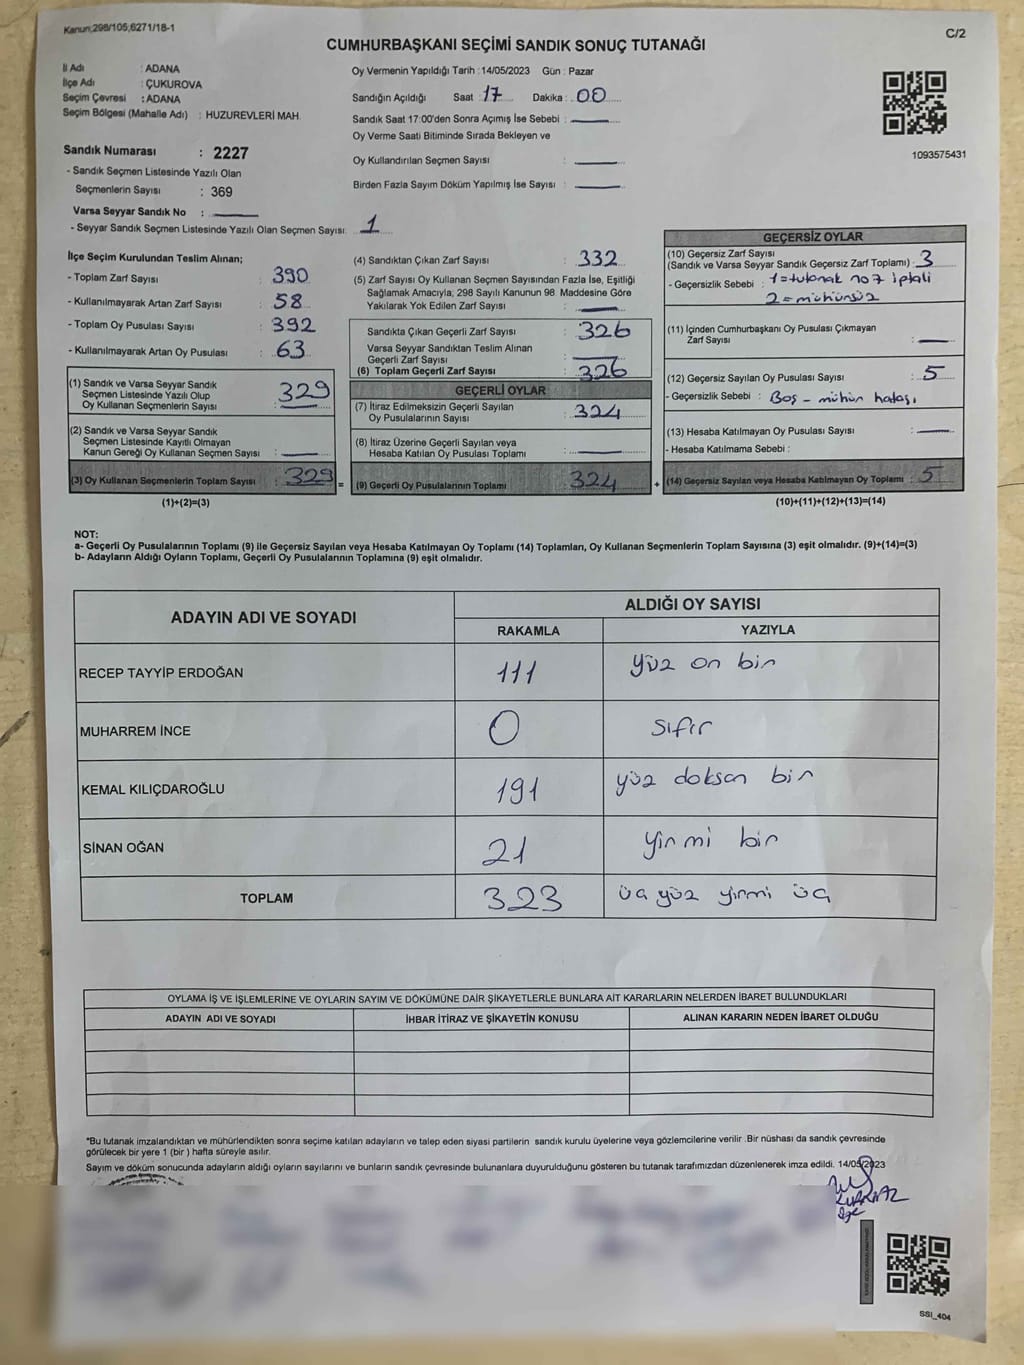 Kanun;298/105,6271/18-1
C/2
CUMHURBAŞKANI SEÇİMİ SANDIK SONUÇ TUTANAĞI
İl Adı : ADANA
İlçe Adı : ÇUKUROVA
Seçim Çevresi : ADANA
Seçim Bölgesi (Mahalle Adı) : HUZUREVLERİ MAH.
Sandık Numarası : 2227
- Sandık Seçmen Listesinde Yazılı Olan
Seçmenlerin Sayısı : 369
Varsa Seyyar Sandık No :
- Seyyar Sandık Seçmen Listesinde Yazılı Olan Seçmen Sayısı: 1
Oy Vermenin Yapıldığı Tarih : 14/05/2023 Gün : Pazar
Sandığın Açıldığı Saat : 17 Dakika : 00
Sandık Saat 17:00'den Sonra Açımış İse Sebebi :
Oy Verme Saati Bitiminde Sırada Bekleyen ve
Oy Kullandırılan Seçmen Sayısı :
Birden Fazla Sayım Döküm Yapılmış İse Sayısı :
1093575431
İlçe Seçim Kurulundan Teslim Alınan;
- Toplam Zarf Sayısı : 390
- Kullanılmayarak Artan Zarf Sayısı : 58
- Toplam Oy Pusulası Sayısı : 392
- Kullanılmayarak Artan Oy Pusulası : 63
(1) Sandık ve Varsa Seyyar Sandık
Seçmen Listesinde Yazılı Olup
Oy Kullanan Seçmenlerin Sayısı : 329
(2) Sandık ve Varsa Seyyar Sandık
Seçmen Listesinde Kayıtlı Olmayan
Kanun Gereği Oy Kullanan Seçmen Sayısı :
(3) Oy Kullanan Seçmenlerin Toplam Sayısı : 329
(1)+(2)=(3)
(4) Sandıktan Çıkan Zarf Sayısı : 332
(5) Zarf Sayısı Oy Kullanan Seçmen Sayısından Fazla İse, Eşitliği
Sağlamak Amacıyla, 298 Sayılı Kanunun 98. Maddesine Göre
Yakılarak Yok Edilen Zarf Sayısı :
Sandıkta Çıkan Geçerli Zarf Sayısı : 326
Varsa Seyyar Sandıktan Teslim Alınan
Geçerli Zarf Sayısı :
(6) Toplam Geçerli Zarf Sayısı : 326
GEÇERLİ OYLAR
(7) İtiraz Edilmeksizin Geçerli Sayılan
Oy Pusulalarının Sayısı : 324
(8) İtiraz Üzerine Geçerli Sayılan veya
Hesaba Katılan Oy Pusulası Toplamı :
= (9) Geçerli Oy Pusulalarının Toplamı 324
GEÇERSİZ OYLAR
(10) Geçersiz Zarf Sayısı
(Sandık ve Varsa Seyyar Sandık Geçersiz Zarf Toplamı) : 3
- Geçersizlik Sebebi : 1=tutanak no 7 iptali
2=mühürsüz
(11) İçinden Cumhurbaşkanı Oy Pusulası Çıkmayan
Zarf Sayısı :
(12) Geçersiz Sayılan Oy Pusulası Sayısı : 5
- Geçersizlik Sebebi : Boş - mühür hatası
(13) Hesaba Katılmayan Oy Pusulası Sayısı :
- Hesaba Katılmama Sebebi :
+ (14) Geçersiz Sayılan veya Hesaba Katılmayan Oy Toplamı : 5
(10)+(11)+(12)+(13)=(14)
NOT:
a- Geçerli Oy Pusulalarının Toplamı (9) ile Geçersiz Sayılan veya Hesaba Katılmayan Oy Toplamı (14) Toplamları, Oy Kullanan Seçmenlerin Toplam Sayısına (3) eşit olmalıdır. (9)+(14)=(3)
b- Adayların Aldığı Oyların Toplamı, Geçerli Oy Pusulalarının Toplamına (9) eşit olmalıdır.
ADAYIN ADI VE SOYADI
ALDIĞI OY SAYISI
RAKAMLA YAZIYLA
RECEP TAYYİP ERDOĞAN 111 yüz on bir
MUHARREM İNCE 0 sıfır
KEMAL KILIÇDAROĞLU 191 yüz doksan bir
SİNAN OĞAN 21 yirmi bir
TOPLAM 323 üç yüz yirmi üç
OYLAMA İŞ VE İŞLEMLERİNE VE OYLARIN SAYIM VE DÖKÜMÜNE DAİR ŞİKAYETLERLE BUNLARA AİT KARARLARIN NELERDEN İBARET BULUNDUKLARI
ADAYIN ADI VE SOYADI İHBAR İTİRAZ VE ŞİKAYETİN KONUSU ALINAN KARARIN NEDEN İBARET OLDUĞU
*Bu tutanak imzalandıktan ve mühürlendikten sonra seçime katılan adayların ve talep eden siyasi partilerin sandık kurulu üyelerine veya gözlemcilerine verilir .Bir nüshası da sandık çevresinde
görülecek bir yere 1 (bir ) hafta süreyle asılır.
Sayım ve döküm sonucunda adayların aldığı oyların sayılarını ve bunların sandık çevresinde bulunanlara duyurulduğunu gösteren bu tutanak tarafımızdan düzenlenerek imza edildi. 14/05/2023
SSI_404